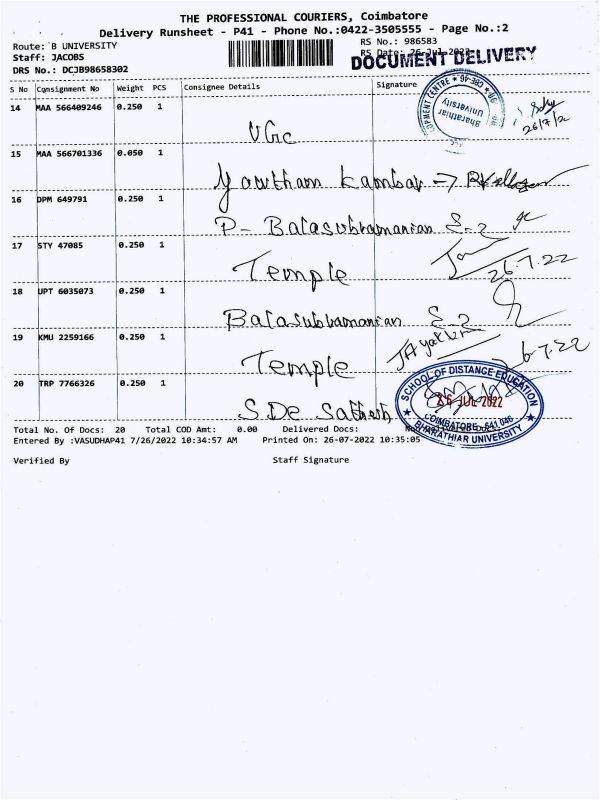 THE PROFESSIONAL COURIERS, Coimbatore
Delivery Runsheet - P41 - Phone No.:0422-3505555 - Page No.:2
Route: B UNIVERSITY
RS No.: 986583
Staff: JACOBS
RS Date: 26-Jul-2022
DOCUMENT DELIVERY
DRS No.: DCJB98658302
S No Consignment No Weight PCS Consignee Details Signature
14 MAA 566409246 0.250 1
UGC
Bharathiar University
26/7/2
15 MAA 566701336 0.050 1
Gowtham Kambar →
16 DPM 649791 0.250 1
P- Balasubramanian S-2
17 STY 47085 0.250 1
Temple
26.7.22
18 UPT 6035073 0.250 1
Balasubramanian S-2
19 KMU 2259166 0.250 1
Temple
6.7.22
20 TRP 7766326 0.250 1
S.De Sathesh
SCHOOL OF DISTANCE EDUCATION
26 JUL 2022
COIMBATORE - 641 046
BHARATHIAR UNIVERSITY
Total No. Of Docs: 20 Total COD Amt: 0.00 Delivered Docs:
Entered By :VASUDHAP41 7/26/2022 10:34:57 AM Printed On: 26-07-2022 10:35:05
Verified By Staff Signature